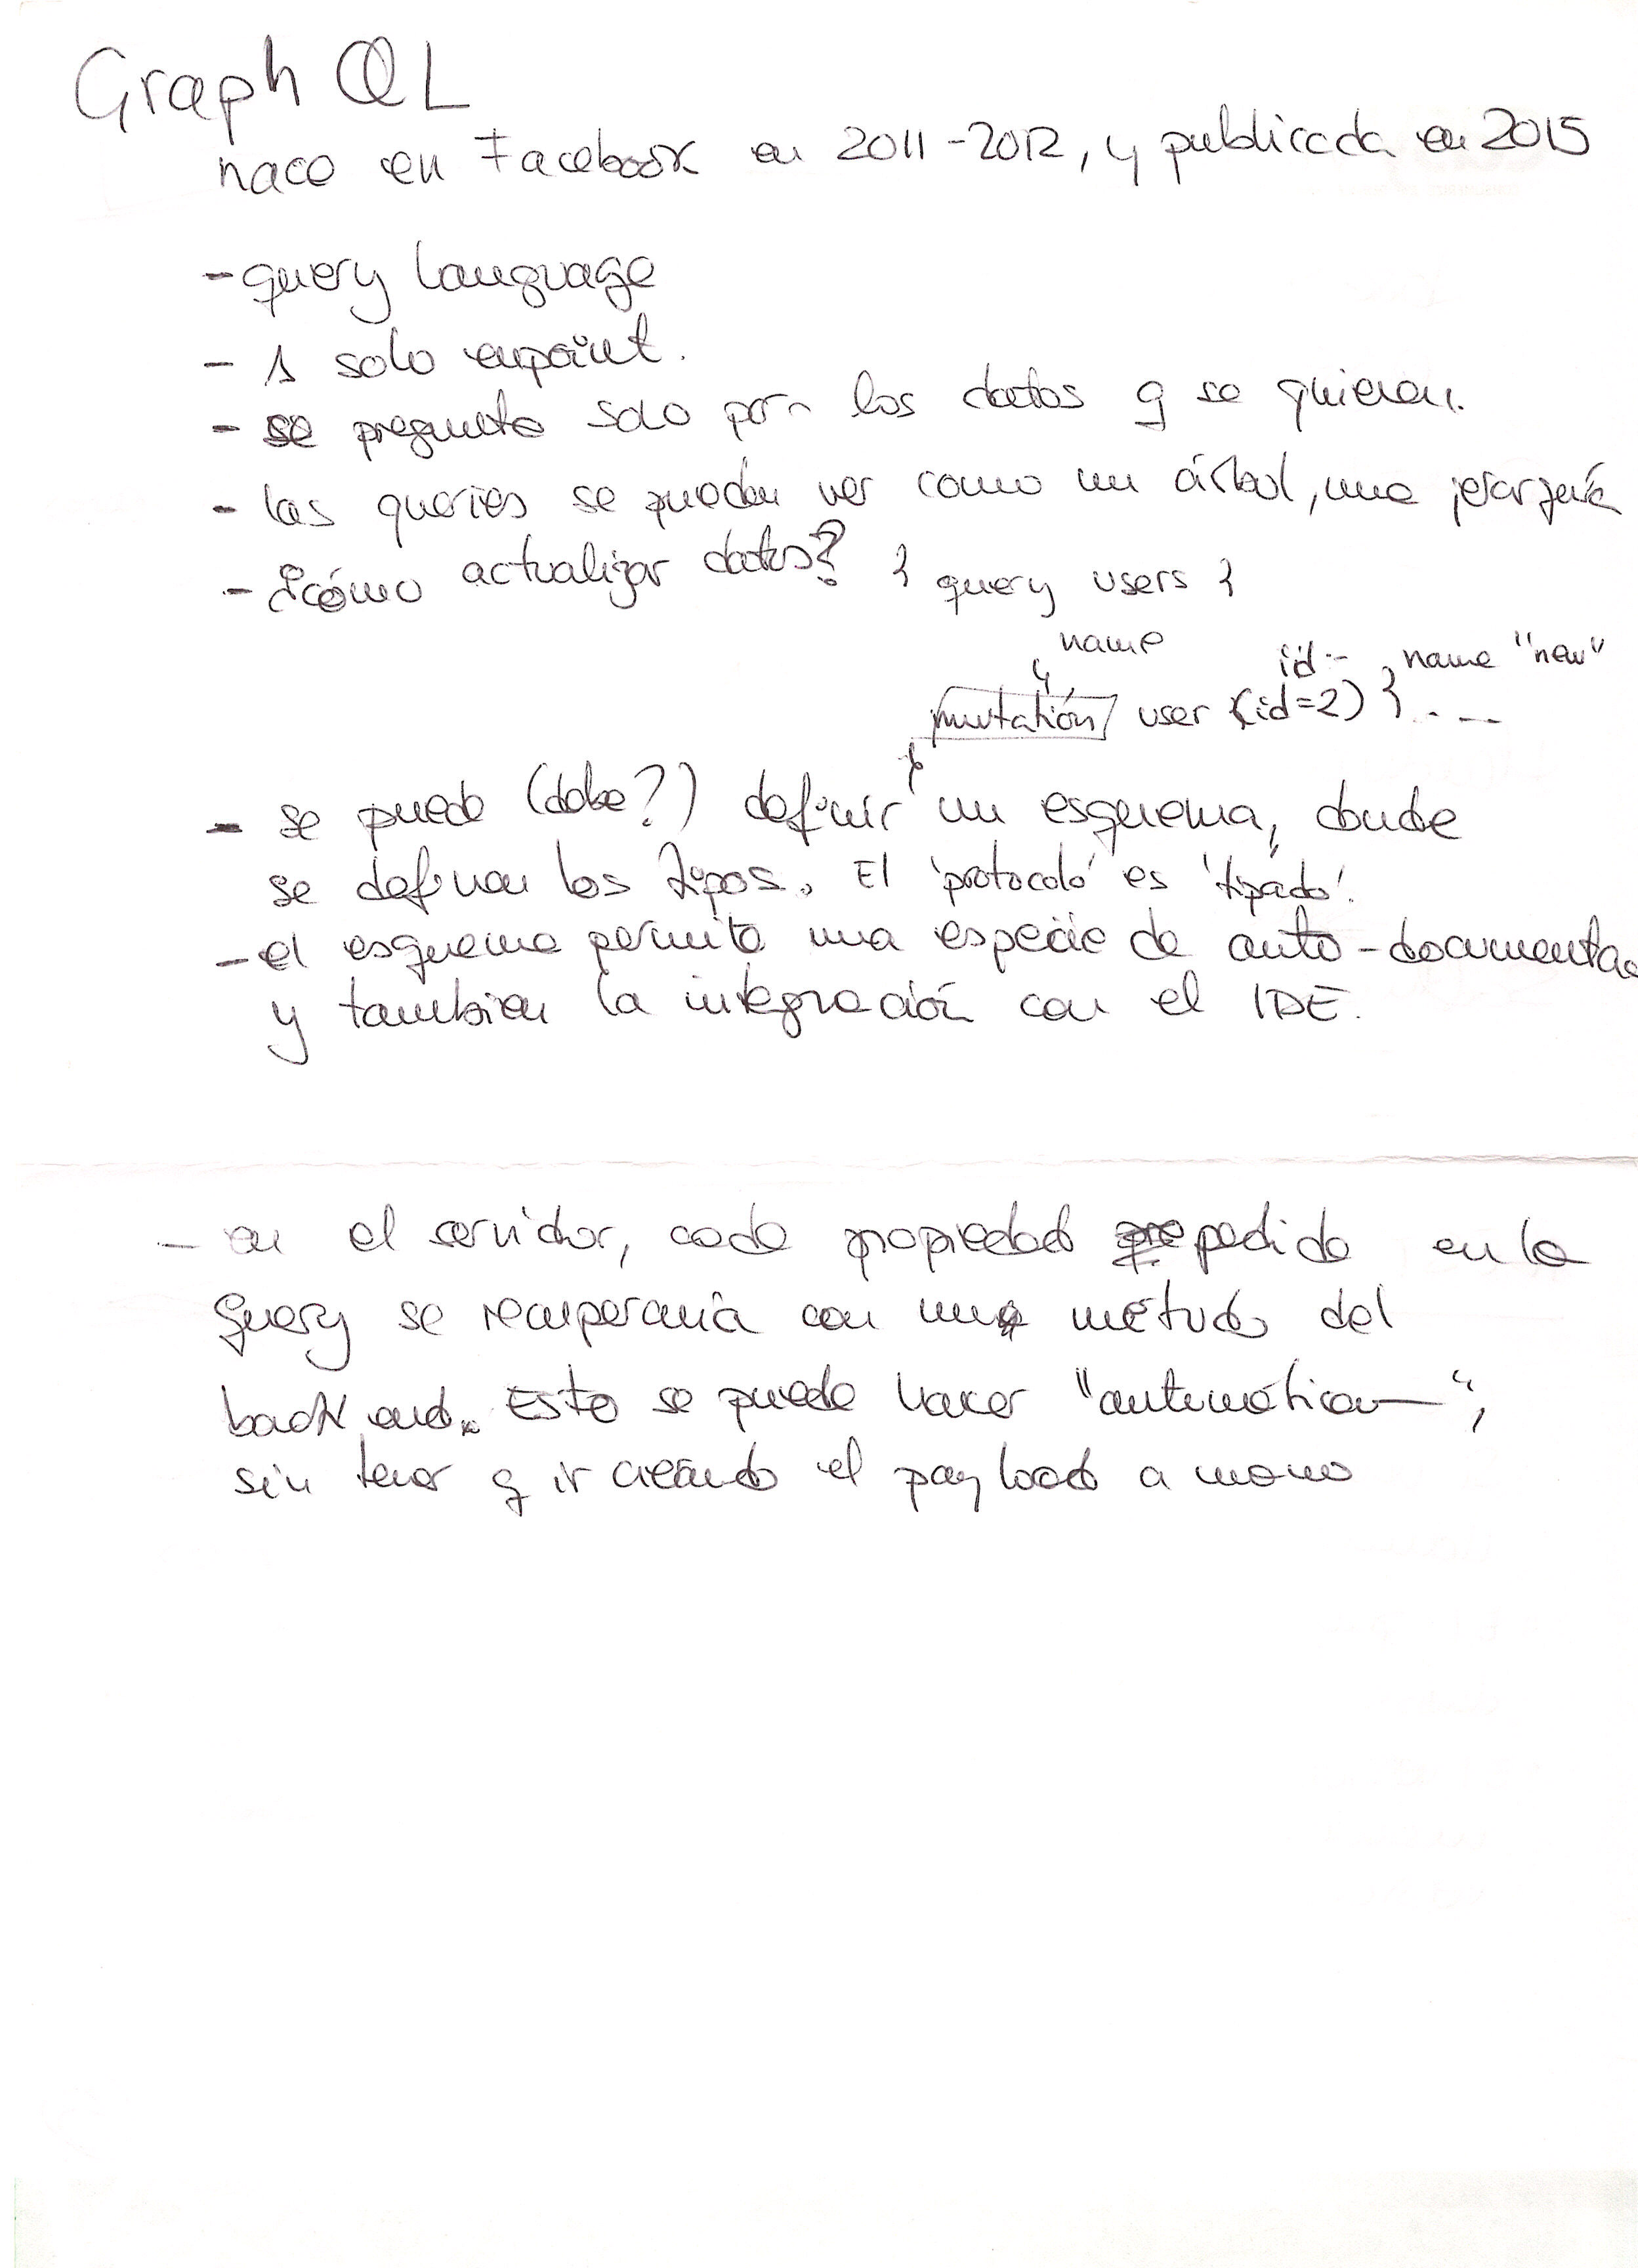 Graph QL
nace en Facebook en 2011-2012, y publicada en 2015
- query language
- 1 solo enpoint.
- se pregunta solo por los datos q se quieren.
- las queries se pueden ver como un árbol, una jerarquía
- ¿cómo actualizar datos? { query users {
name
id: , name "new"
mutation user (id=2) } . --
- se puede (debe?) definir un esquema, donde
se definen los tipos. El 'protocolo' es 'tipado'.
- el esquema permite una especie de auto-documentac
y tambien la integración con el IDE.
- en el servidor, cada propiedad pedida en la
query se recuperaría con un método del
back end. Esto se puede hacer "automática—",
sin tener q ir creando el payload a mano